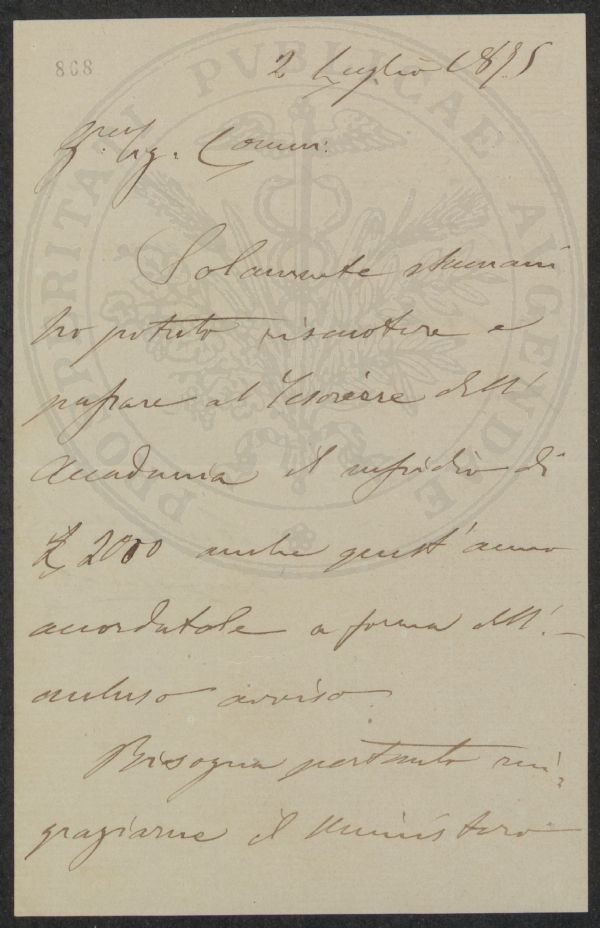 868
2 Luglio 1895
Sig. Comm.
Solamente stamani
ho potuto riscuotere e
passare al Tesoriere dell'
Accademia il sussidio di
£ 2000 anche quest'anno
accordatole a forma dell'
accluso avviso.
Bisogna pertanto rin=
graziarne il Ministero
PROSPERITATI PVBLICAE AVGENDAE